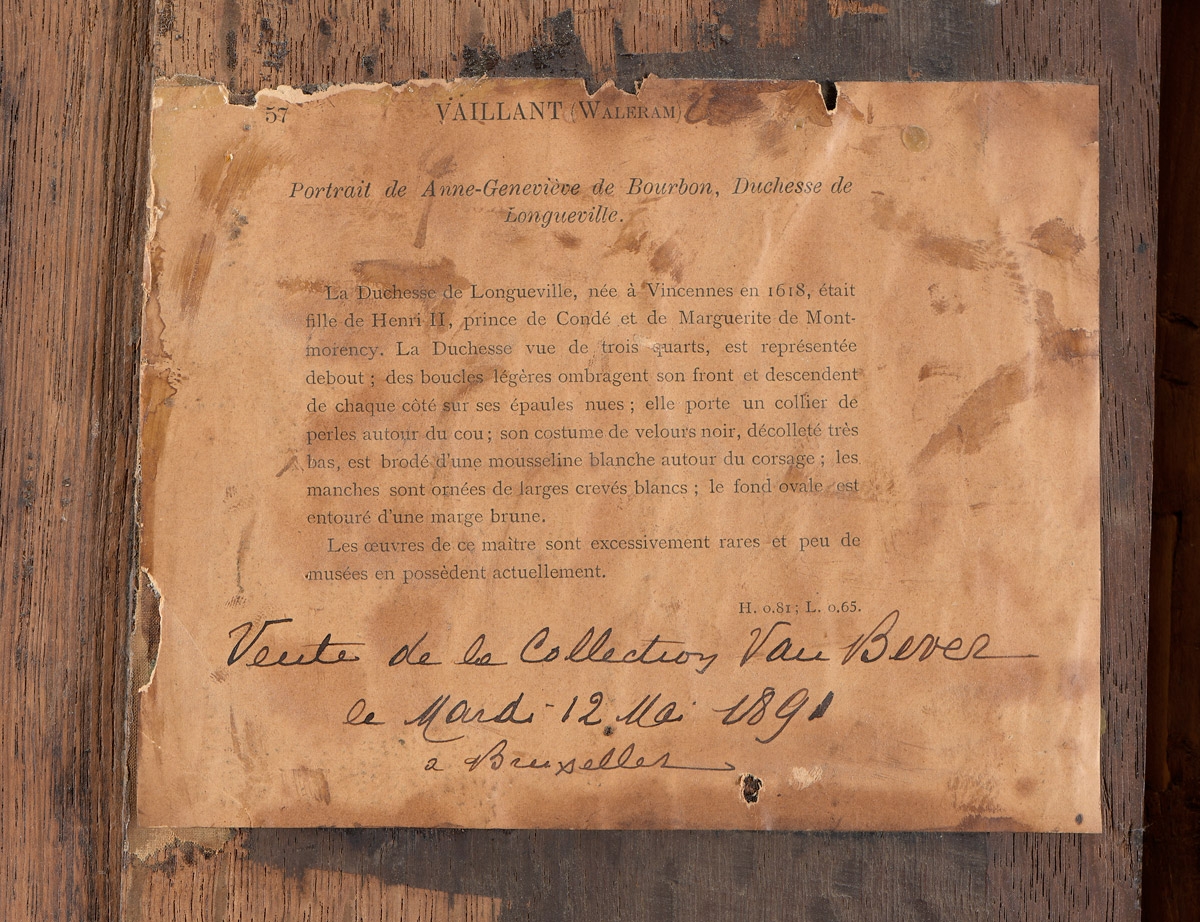 57 VAILLANT (WALERAM)
Portrait de Anne-Geneviève de Bourbon, Duchesse de
Longueville.
La Duchesse de Longueville, née à Vincennes en 1618, était
fille de Henri II, prince de Condé et de Marguerite de Mont-
morency. La Duchesse vue de trois quarts, est représentée
debout ; des boucles légères ombragent son front et descendent
de chaque côté sur ses épaules nues ; elle porte un collier de
perles autour du cou ; son costume de velours noir, décolleté très
bas, est brodé d'une mousseline blanche autour du corsage ; les
manches sont ornées de larges crevés blancs ; le fond ovale est
entouré d'une marge brune.
Les œuvres de ce maître sont excessivement rares et peu de
musées en possèdent actuellement.
H. 0.81 ; L. 0.65.
Vente de la Collection Van Bever
le Mardi 12 Mai 1891
a Bruxelles